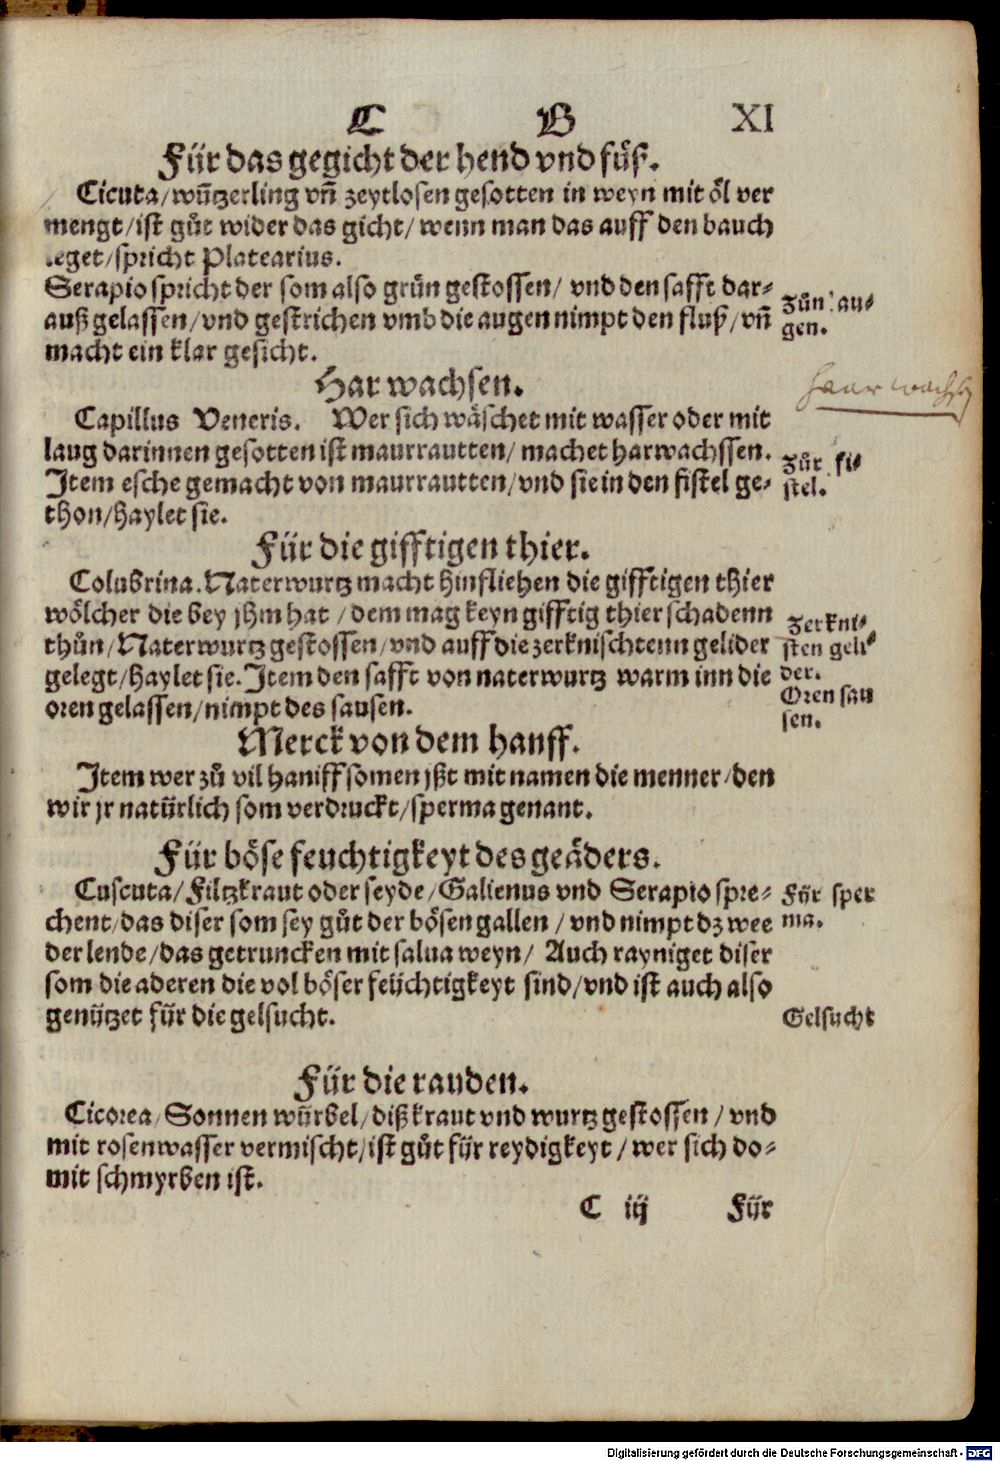 C B XI
Für das gegicht der hend vnd füß.
Cicuta/wůtzerling vñ zeytlosen gesotten in weyn mit öl ver
mengt/ist gůt wider das gicht/wenn man das auff den bauch
leget/spricht Platearius.
Serapio spricht der som also grün gestossen/ vnd den safft dar-
auß gelassen/vnd gestrichen vmb die augen nimpt den fluß/vñ
macht ein klar gesicht.
Zůn au-
gen.
Har wachsen.
haar wachsen
Capillus Veneris. Wer sich wäschet mit wasser oder mit
laug darinnen gesotten ist maurrautten/ machet harwachssen.
Item esche gemacht von maurrautten/vnd sie in den fistel ge-
thon/haylet sie.
Zůr fi-
stel.
Für die gifftigen thier.
Colubrina. Naterwurtz macht hinfliehen die gifftigen thier
wölcher die bey jhm hat /dem mag keyn gifftig thier schadenn
thůn/Naterwurtz gestossen/vnd auff die zerknischtenn gelider
gelegt/haylet sie. Item den safft von naterwurtz warm inn die
oren gelassen/nimpt des sausen.
Zerkni-
sten geli-
der.
Oren sau
sen.
Merck von dem hanff.
Item wer zů vil haniffsomen jßt mit namen die menner/den
wir jr natürlich som verdruckt/sperma genant.
Für böse feuchtigkeyt des geäders.
Cuscuta/Filtzkraut oder seyde/Galienus vnd Serapio spre-
chent/das diser som sey gůt der bösen gallen /vnd nimpt dz wee
der lende/das getruncken mit salua weyn/ Auch rayniget diser
som die aderen die vol böser feüchtigkeyt sind/vnd ist auch also
genützet für die gelsucht.
Für sper
ma.
Gelsucht
Für die rauden.
Cicorea/Sonnen würbel/diß kraut vnd wurtz gestossen /vnd
mit rosenwasser vermischt/ist gůt für reydigkeyt /wer sich do-
mit schmyrben ist.
C iij Für
Digitalisierung gefördert durch die Deutsche Forschungsgemeinschaft - DFG